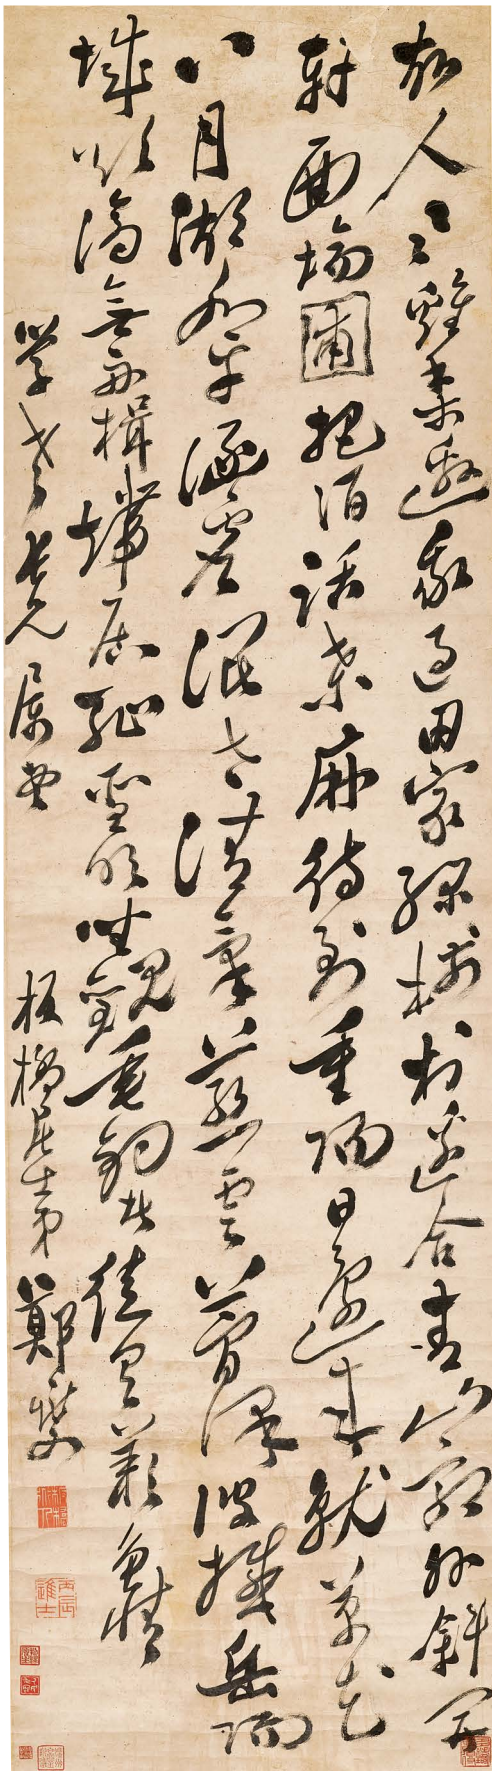 故人具雞黍邀我過田家綠樹村邊合青山郭外斜開
軒面場圃把酒話桑麻待到重陽日還來就菊花
八月湖水平涵虛混太清氣蒸雲夢澤波撼岳陽
城欲濟無舟楫端居恥聖明坐觀垂釣者徒有羨魚情
學老長兄屬書 板橋居士弟鄭燮
丙辰進士